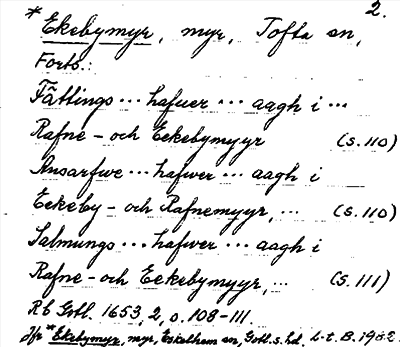 2.
* Ekebymyr, myr, Tofta sn,
Forts.:
Fättings ... hafuer ... aagh i ...
Rafne - och Eekebymyyr (s. 110)
Ansarfwe ... hafwer ... aagh i
Eekeby - och Rafnemyyr, ... (s. 110)
Salmungs ... hafwer ... aagh i
Rafne - och Eekebymyyr, ... (s. 111)
Rb Gotl. 1653, 2, s. 108-111.
Jfr * Ekebymyr, myr, Eskelhem sn, Gotl. s. hd. L-t. B. 1982.